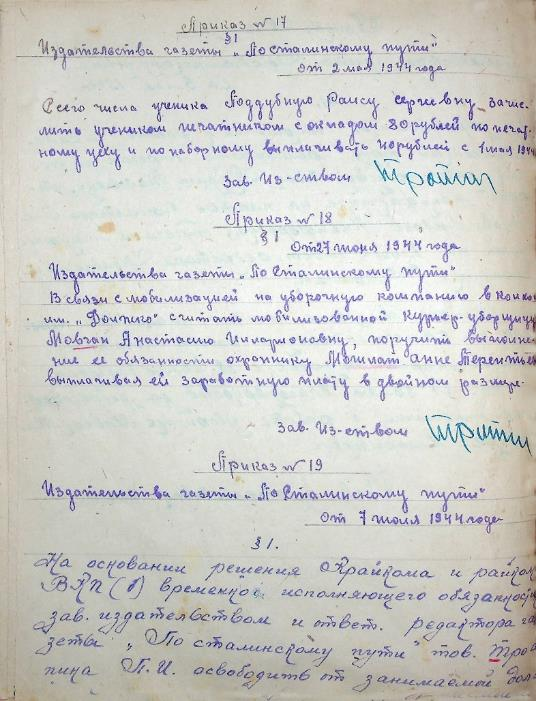 Приказ № 17
§1
Издательства газеты "По сталинскому пути"
от 2 мая 1944 года
Сего числа ученика Поддубную Раису сергеевну зачис-
лить учеником печатником с окладом 80 рублей по печат-
ному цеху и по наборному выплачивать рублей с 1 мая 1944
Зав. Из-ством
Приказ № 18
§1
От 27 июня 1944 года
Издательства газеты "По Сталинскому пути"
В связи с мобилизацией на уборочную компанию в
им. считать мобилизованной курьер-уборщицу
Мовчан Анастасию поручить выполне-
ние ее обязанности охраннику анне
выплачивая ей заработную плату в двойном размере.
Зав. Из-ством
Приказ № 19
Издательства газеты "По Сталинскому пути"
От 7 июля 1944 года
§1.
На основании решения Крайкома и райком
ВКП(б) временно исполняющего обязанност
зав. издательством и ответ. редактора га
зеты "По сталинскому пути" тов. Тро
пина П.И. освободить от занимаемой дол